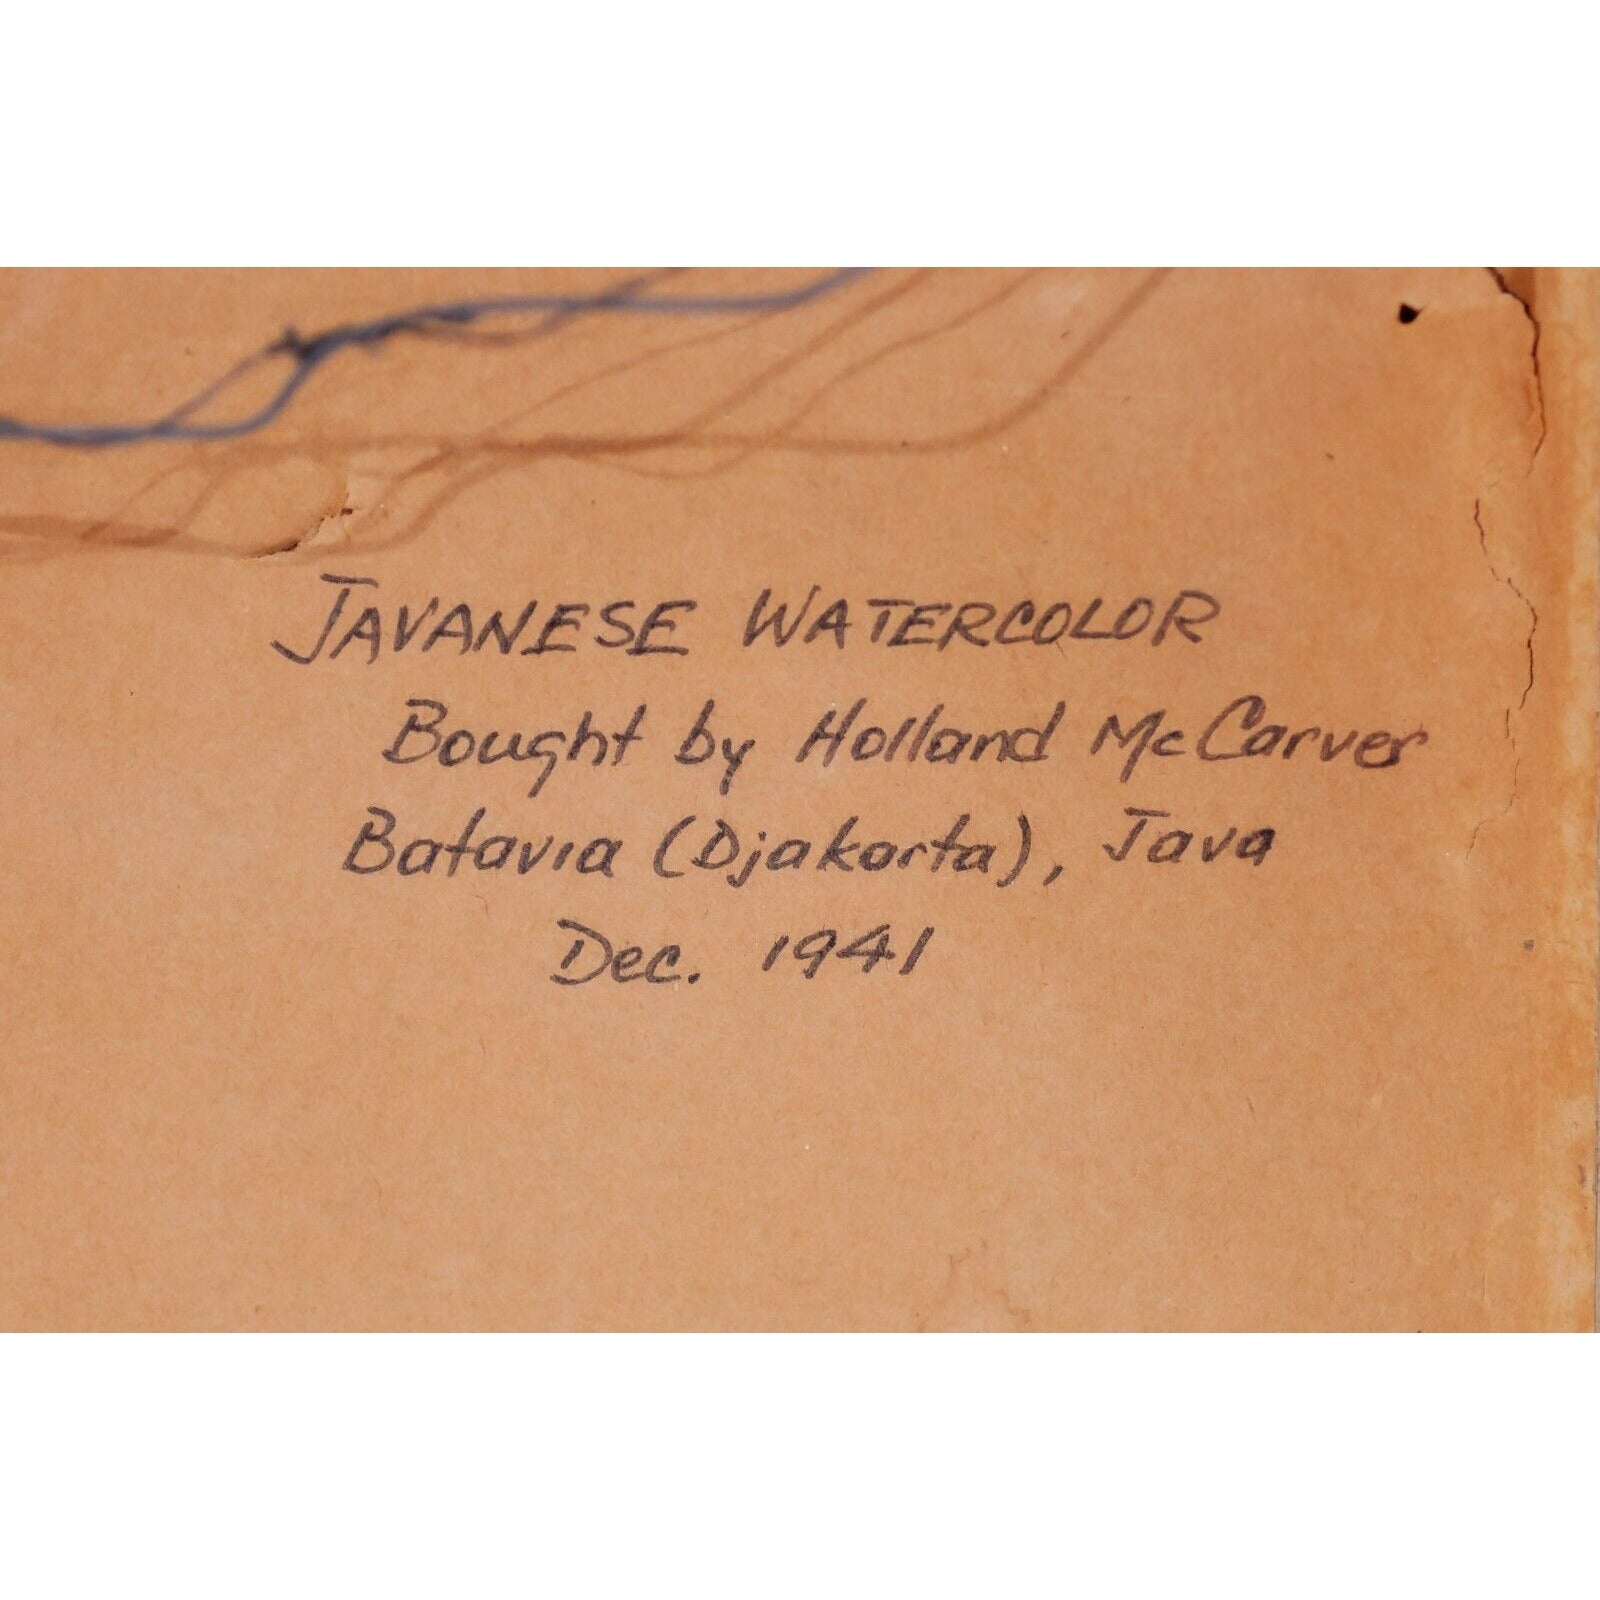 JAVANESE WATERCOLOR
Bought by Holland McCarver
Batavia (Djakarta), Java
Dec. 1941